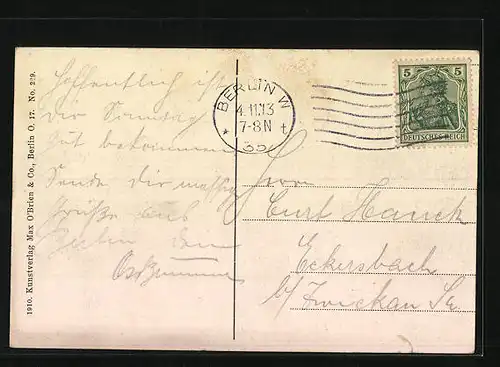 Hoffentlich ist
die Sonntag
gut bekommen
Sende dir
Grüße aus
Berlin dein
1910. Kunstverlag Max O'Brien & Co., Berlin O. 17. No. 229.
BERLIN W
4.11.13
7-8N
* 35 t
5 5
DEUTSCHES REICH
Herrn
Curt Hauck
Eckersbach
b/ Zwickau Sa.